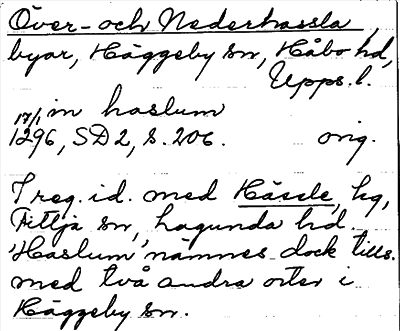 Över- och Nederhassla,
byar, Häggeby sn, Håbo hd,
Upps.l.
in haslum
17/1 1296, SD 2, s. 206. orig.
I reg. id. med Hässle, hg,
Fittja sn, hagunda hd.
"Haslum" nämnes dock tills.
med två andra orter i
Häggeby sn.